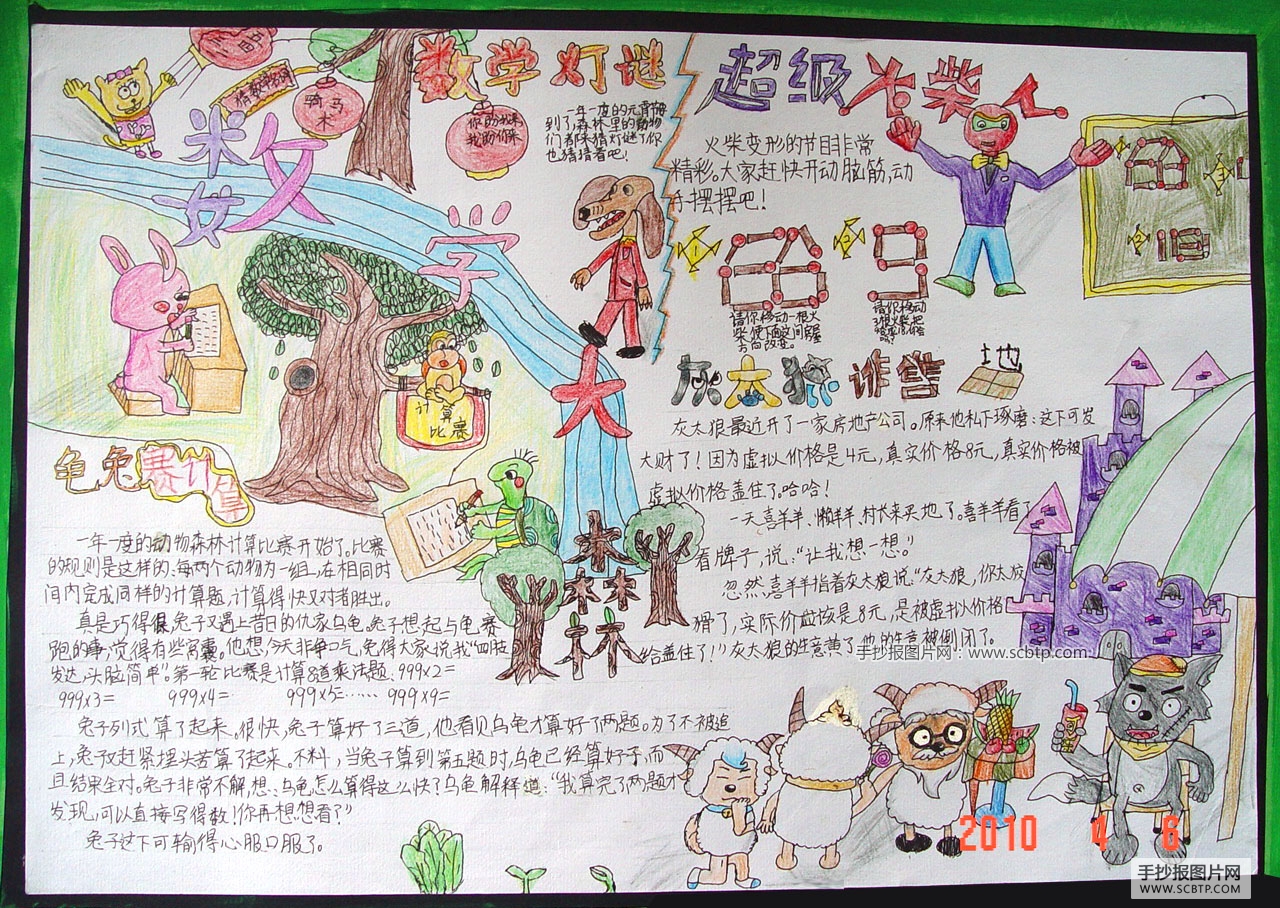 数学大森林
数学灯谜
一年一度的元宵节
到了,森林里的动物
们都来猜灯谜了,你
也猜猜看吧!
你盼我来
我盼你来
计算
比赛
超级火柴人
火柴变形的节目非常
精彩。大家赶快开动脑筋,动
手摆摆吧!
请你移动一根火
柴,使下面这间房屋
方向改变。
灰太狼诈售地
灰太狼最近开了一家房地产公司。原来他私下琢磨:这下可发
大财了!因为虚拟价格是4元,真实价格8元,真实价格被
虚拟价格盖住了。哈哈!
一天喜羊羊、懒羊羊、村长来买地了。喜羊羊看了
看牌子,说:“让我想一想。”
忽然,喜羊羊指着灰太狼说:“灰太狼,你太狡
猾了,实际价应该是8元,是被虚拟价格
给盖住了!”灰太狼的生意黄了,他的生意被倒闭了。
龟兔赛计算
一年一度的动物森林计算比赛开始了。比赛
的规则是这样的:每两个动物为一组,在相同时
间内完成同样的计算题,计算得快又对者胜出。
真是巧得很,兔子又遇上昔日的仇家乌龟。兔子想起与龟赛
跑的事,觉得有些窝囊。他想,今天非争口气,免得大家说我“四肢
发达,头脑简单”。第一轮比赛是计算8道乘法题:999×2=
999×3= 999×4= 999×5=…… 999×9=
兔子列式算了起来。很快,兔子算好了三道,他看见乌龟才算好了两题。为了不被追
上,兔子又赶紧埋头苦算了起来。不料,当兔子算到第五题时,乌龟已经算好了,而
且结果全对。兔子非常不解,想:乌龟怎么算得这么快?乌龟解释道:“我算完了两题才
发现,可以直接写得数!你再想想看?”
兔子这下可输得心服口服了。
手抄报图片网:www.scbtp.com
2010 4 6
手抄报图片网
WWW.SCBTP.COM